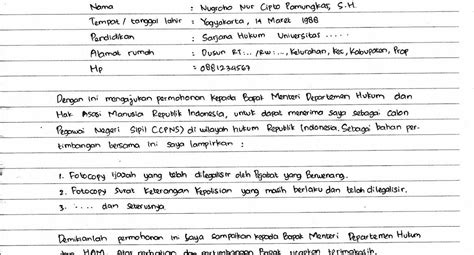 Nama : Nugroho Nur Cipto Pamungkas, S.H.
Tempat / tanggal lahir : Yogyakarta, 14 Maret 1988
Pendidikan : Sarjana Hukum Universitas .....
Alamat rumah : Dusun RT:... /RW:..., Kelurahan, Kec, Kabupaten, Prop
Hp : 0881234567
Dengan ini mengajukan permohonan kepada Bapak Menteri Departemen Hukum dan
Hak Asasi Manusia Republik Indonesia, untuk dapat menerima saya sebagai calon
Pegawai Negeri Sipil (CPNS) di wilayah hukum Republik Indonesia. Sebagai bahan per-
timbangan bersama ini saya lampirkan :
1. Fotocopy Ijazah yang telah dilegalisir oleh Pejabat yang Berwenang.
2. Fotocopy Surat Keterangan Kepolisian yang masih berlaku dan telah dilegalisir.
3. ..... dan seterusnya.
Demikianlah permohonan ini saya sampaikan kepada Bapak Menteri Departemen Hukum
dan HAM. Atas perhatian dan pertimbangan Bapak ucapkan terimakasih.